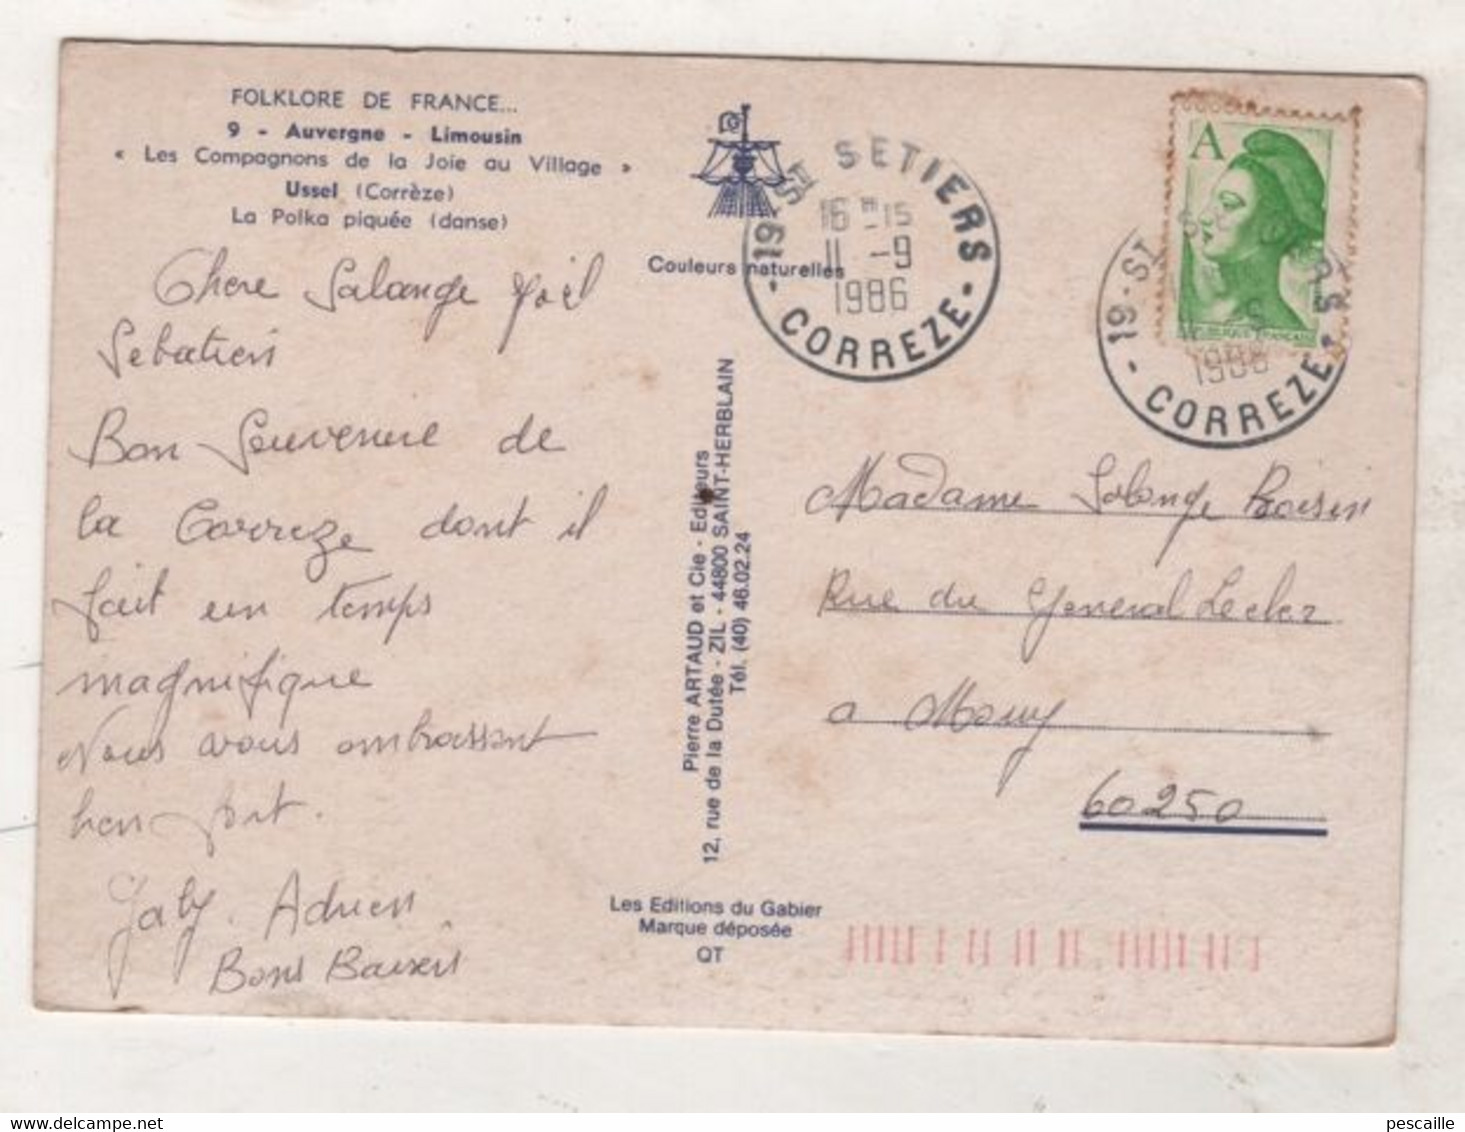 FOLKLORE DE FRANCE...
9 - Auvergne - Limousin
« Les Compagnons de la Joie au Village »
Ussel (Corrèze)
La Polka piquée (danse)
Couleurs naturelles
19 - ST SETIERS
16 H 15
11 - 9
1986
- CORREZE -
A
19 - ST SETIERS
1986
- CORREZE -
Chere Solange Joël
Sebatien
Bon Souvenire de
la Correze dont il
fait un temps
magnifique
Nous vous ombrassont
bien fort.
Gaby. Adrien
Bons Baisers
Pierre ARTAUD et Cie - Editeurs
12, rue de la Dutée - ZIL - 44800 SAINT-HERBLAIN
Tél. (40) 46.02.24
Les Editions du Gabier
Marque déposée
QT
Madame Solange Boisin
Rue du General Lecler
a Mouy
60250
pescaille